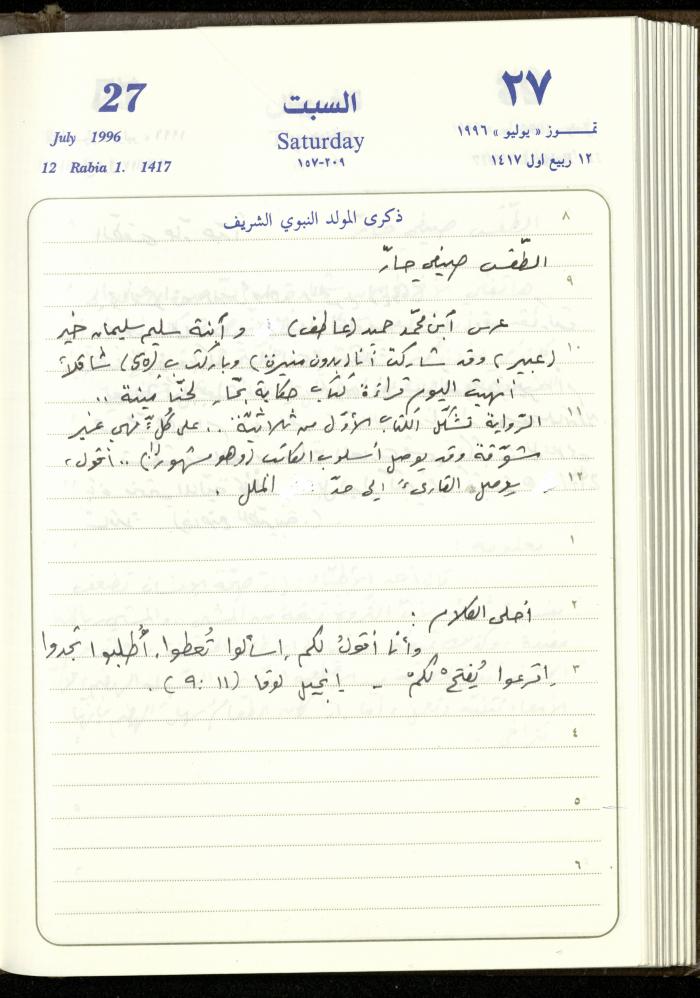 27
السبت
٢٧
July 1996
Saturday
تمـــوز « يوليو » ١٩٩٦
12 Rabia 1. 1417
٢٠٩-١٥٧
١٢ ربيع اول ١٤١٧
ذكرى المولد النبوي الشريف
٨
الطّقس صيفي حارّ
٩
عرس ابن محمّد حمد (عاطف) وابنة سليم سليمان خير
١٠
(عبير) وقد شاركت أنا (بدون منيرة) وباركت ب (50) شاقلاً
أنهيت اليوم قراءة كتاب حكاية بحّار لحنّا مينة ..
١١
الرّواية تشكّل الكتاب الأوّل من ثلاثيّة .. على كُلٍّ فهي غير
مشوّقة وقد يوصل أسلوب الكاتب (وهو مشهور!) .. أقول،
١٢
يوصل القارىء إلى حدّ الملل .
١
٢
أحلى الكلام :
وأنا أقولُ لكم اسألوا تُعطوا، أُطلبوا تجدوا
٣
اقرعوا يُفتحْ لكمْ - إنجيل لوقا (١١ :٩) .
٤
٥
٦